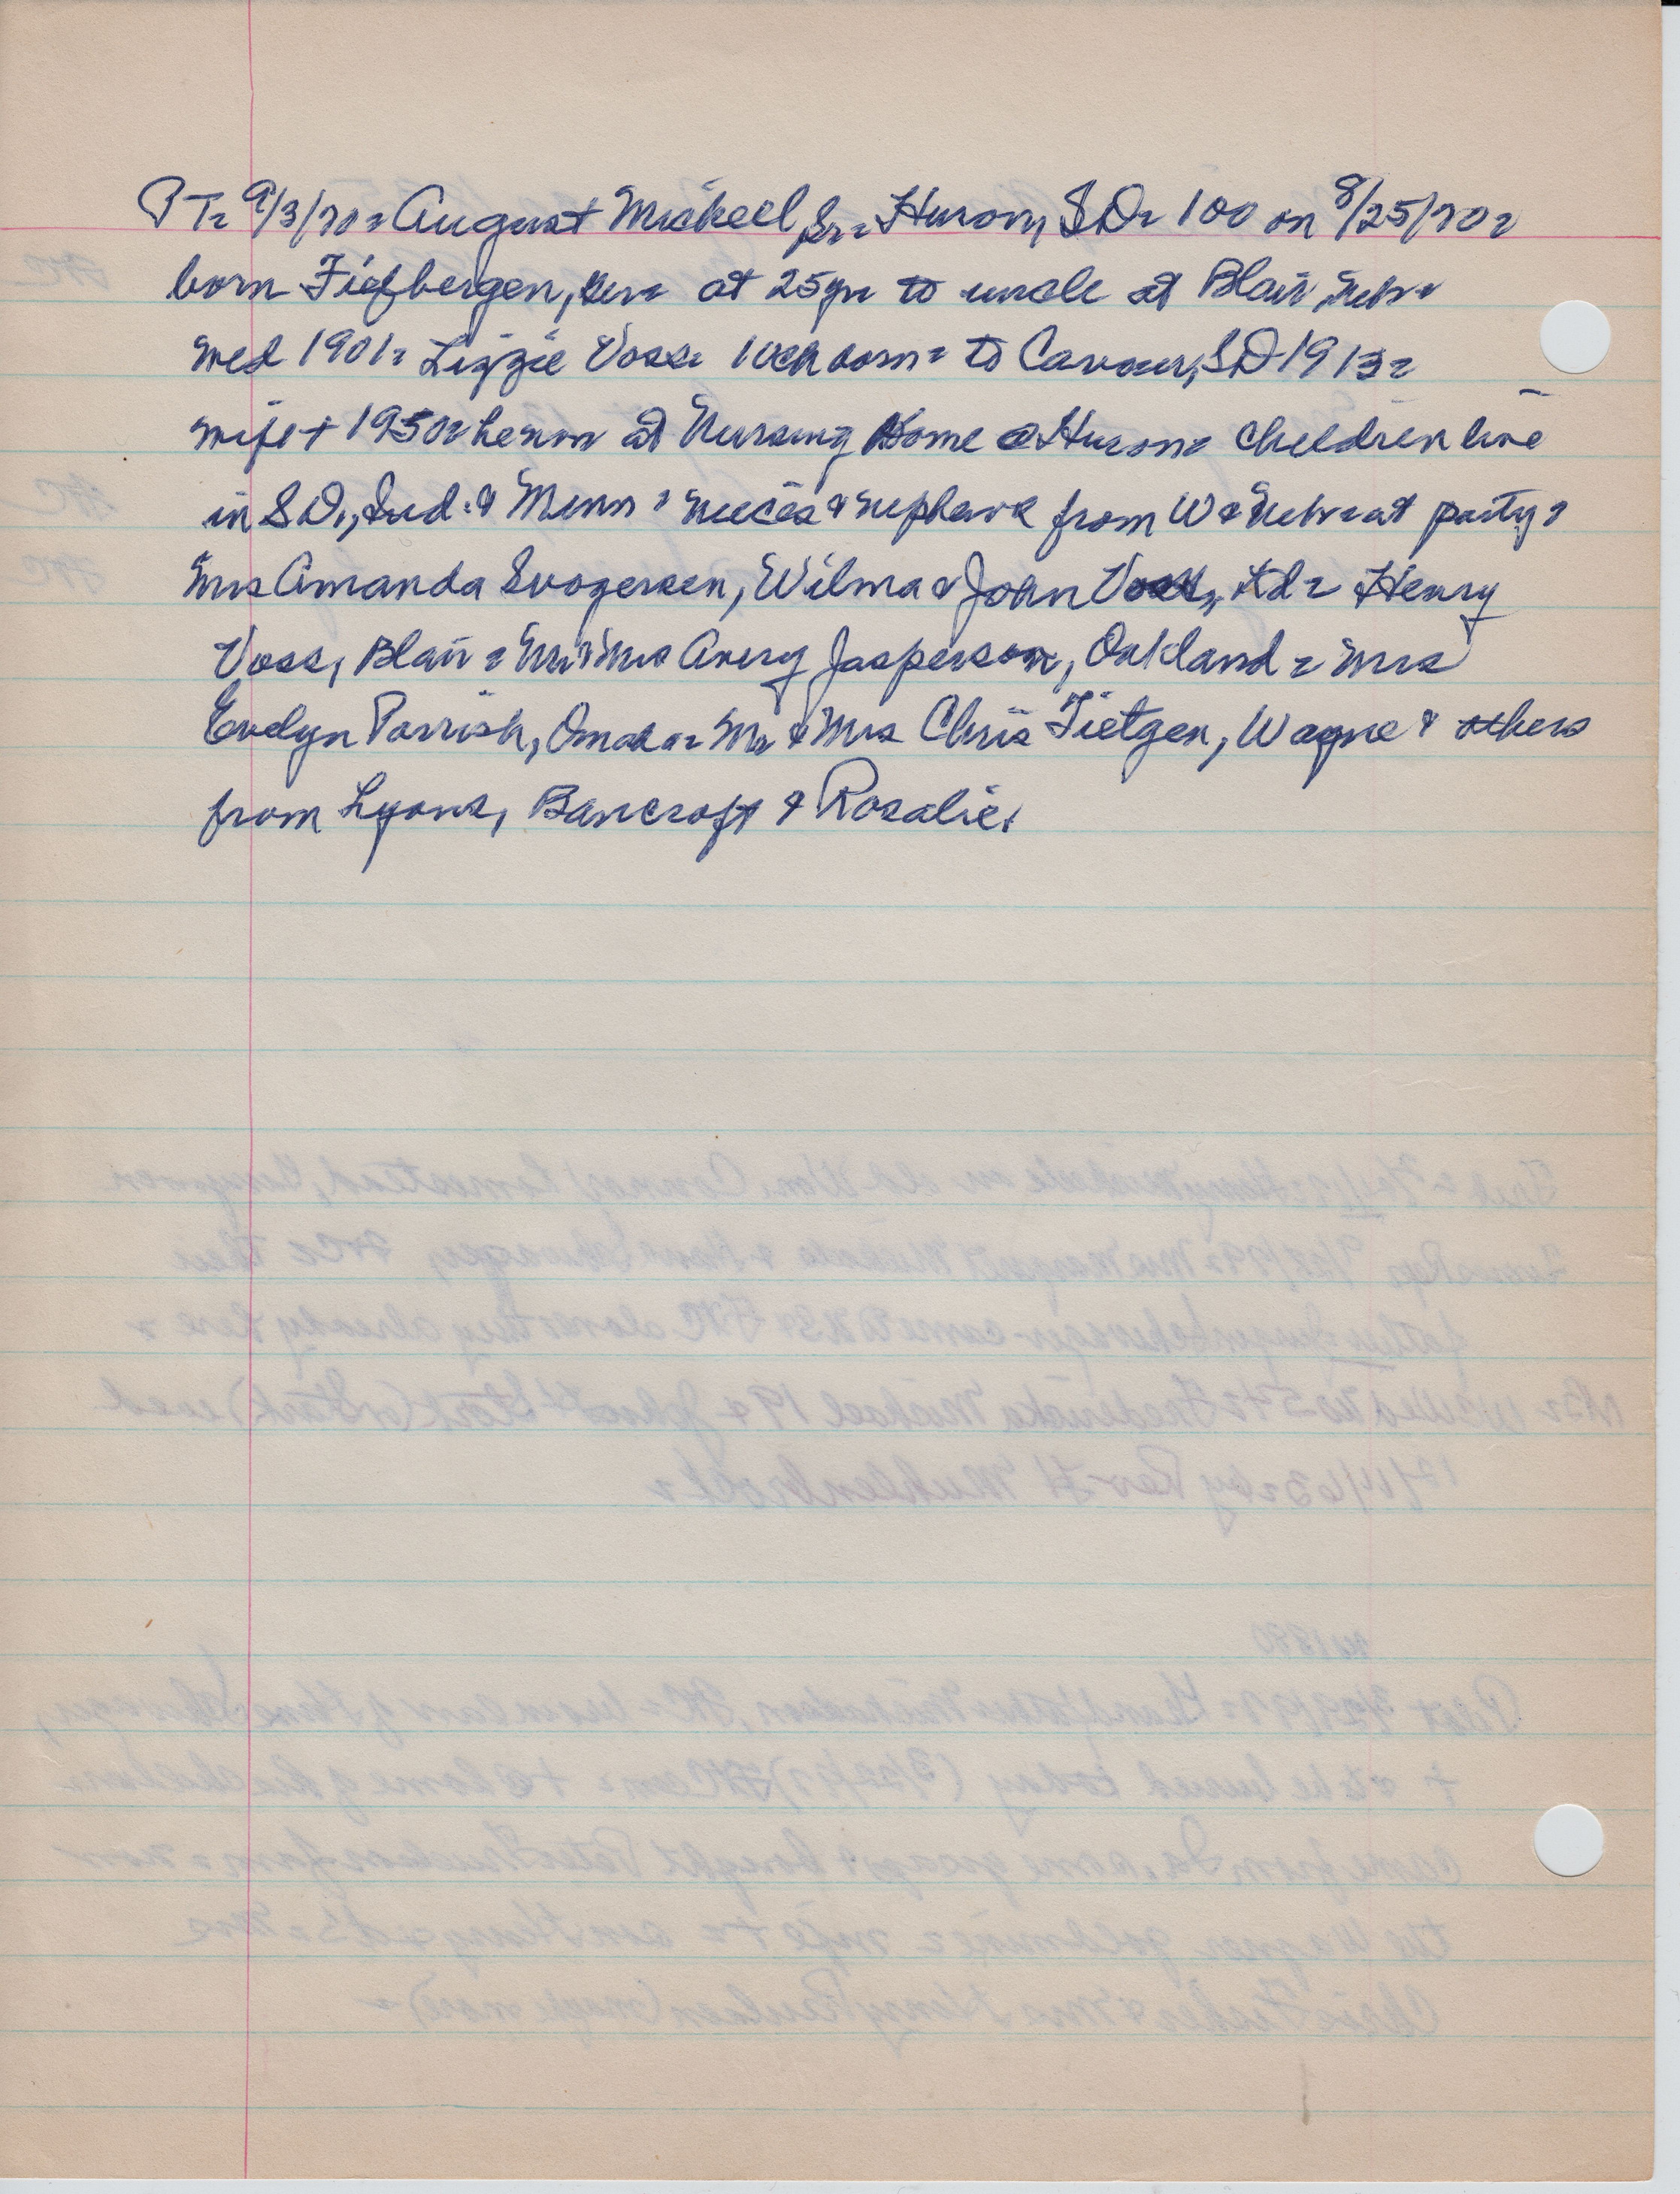 PT- 9/3/70- August Mickeel, Sr- Huron, SD- 100 on 8/25/70-
born Fiefbergen, Ger- at 25yr to uncle at Blair, Nebr-
wed 1901- Lizzie Voss- to Cavour, SD 1913-
wife + 1950- he now at Nursing Home @ Huron- Children live
in SD, Ind. & Minn- nieces & nephews from W & Nebr at party-
Mrs Amanda Svogerson, Wilma & John Voss, Kd- Henry
Voss, Blair- Mr & Mrs Avery Jasperson, Oakland- Mrs
Evelyn Parrish, Omaha- Mr & Mrs Chris Tietgen, Wagne & others
from Lyons, Bancroft & Rosalie.